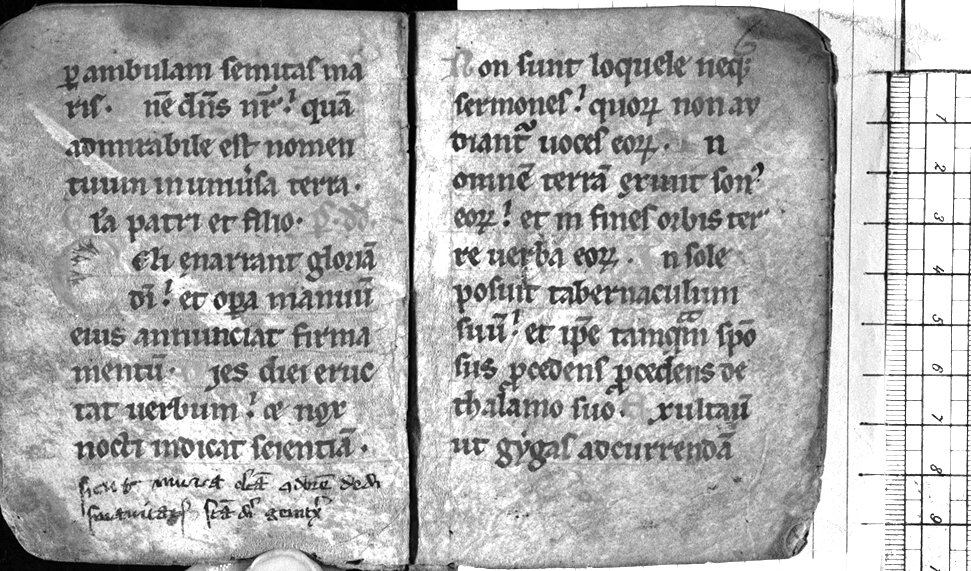 ꝑambulam semitas ma
ris. nē dn̄s nr̄ : quā
admirabile est nomen
tuum in uniu̾sa terra.
ľa patri et filio.
Eli enarrant gloriā
dī : et oꝑa manuū
eius annunciat firma
mentū. ies diei eruc
tat uerbum : et nox
nocti indicat scientiā.
Non sunt loquele neqꝫ
sermones : quoꝝ non au
diant᷑ uoces eoꝝ. n
omnē terrā exiuit son᷒
eoꝝ : et in fines orbis ter
re uerba eoꝝ. n sole
posuit tabernaculum
suū : et ip̄e tamqͣm spō
sus ꝓcedens ꝓcedens de
thalamo suo. xultauī
ut gygas ad currendā
6
1
2
3
4
5
6
7
8
9